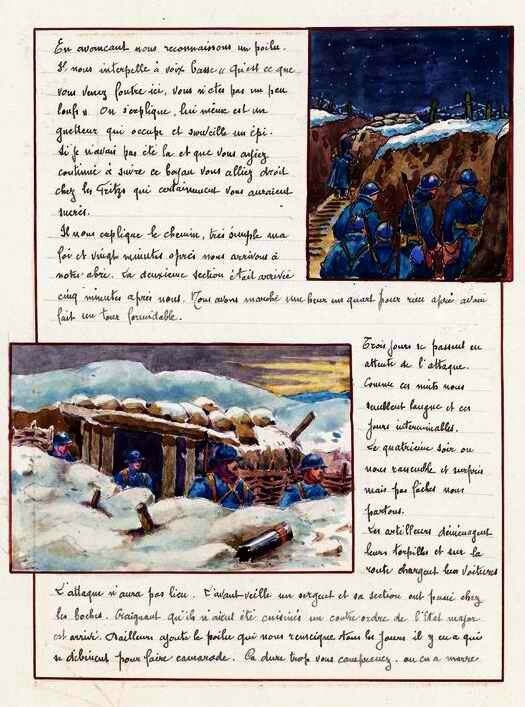 En avançant nous reconnaissons un poilu.
Il nous interpelle à voix basse « Qu'est ce que
vous venez foutre ici, vous n'êtes pas un peu
loufs ». On s'explique, lui même est un
guetteur qui occupe et surveille un épi.
Si je n'avais pas été là et que vous ayiez
continué à suivre ce boyau vous alliez droit
chez les Fritzs qui certainement vous auraient
sucrés.
Il nous explique le chemin, très simple ma
foi et vingt minutes après nous arrivons à
notre abri. La deuxième section était arrivée
cinq minutes après nous. Nous avons marché une heure un quart pour rien après avoir
fait un tour formidable.
Trois jours se passent en
attente de l'attaque.
Comme ces nuits nous
semblent longues et ces
jours interminables.
Le quatrième soir on
nous rassemble et surpris
mais pas fâchés nous
partons.
Les artilleurs déménagent
leurs torpilles et sur la
route chargent leurs voitures
L'attaque n'aura pas lieu. L'avant veille un sergent et sa section ont passé chez
les boches. Craignant qu'ils n'aient été cuisinés un contre ordre de l'Etat major
est arrivé. D'ailleurs ajoute le poilu qui nous renseigne tous les jours il y en a qui
se débinent pour faire camarade. Ça dure trop vous comprenez, on en a marre.